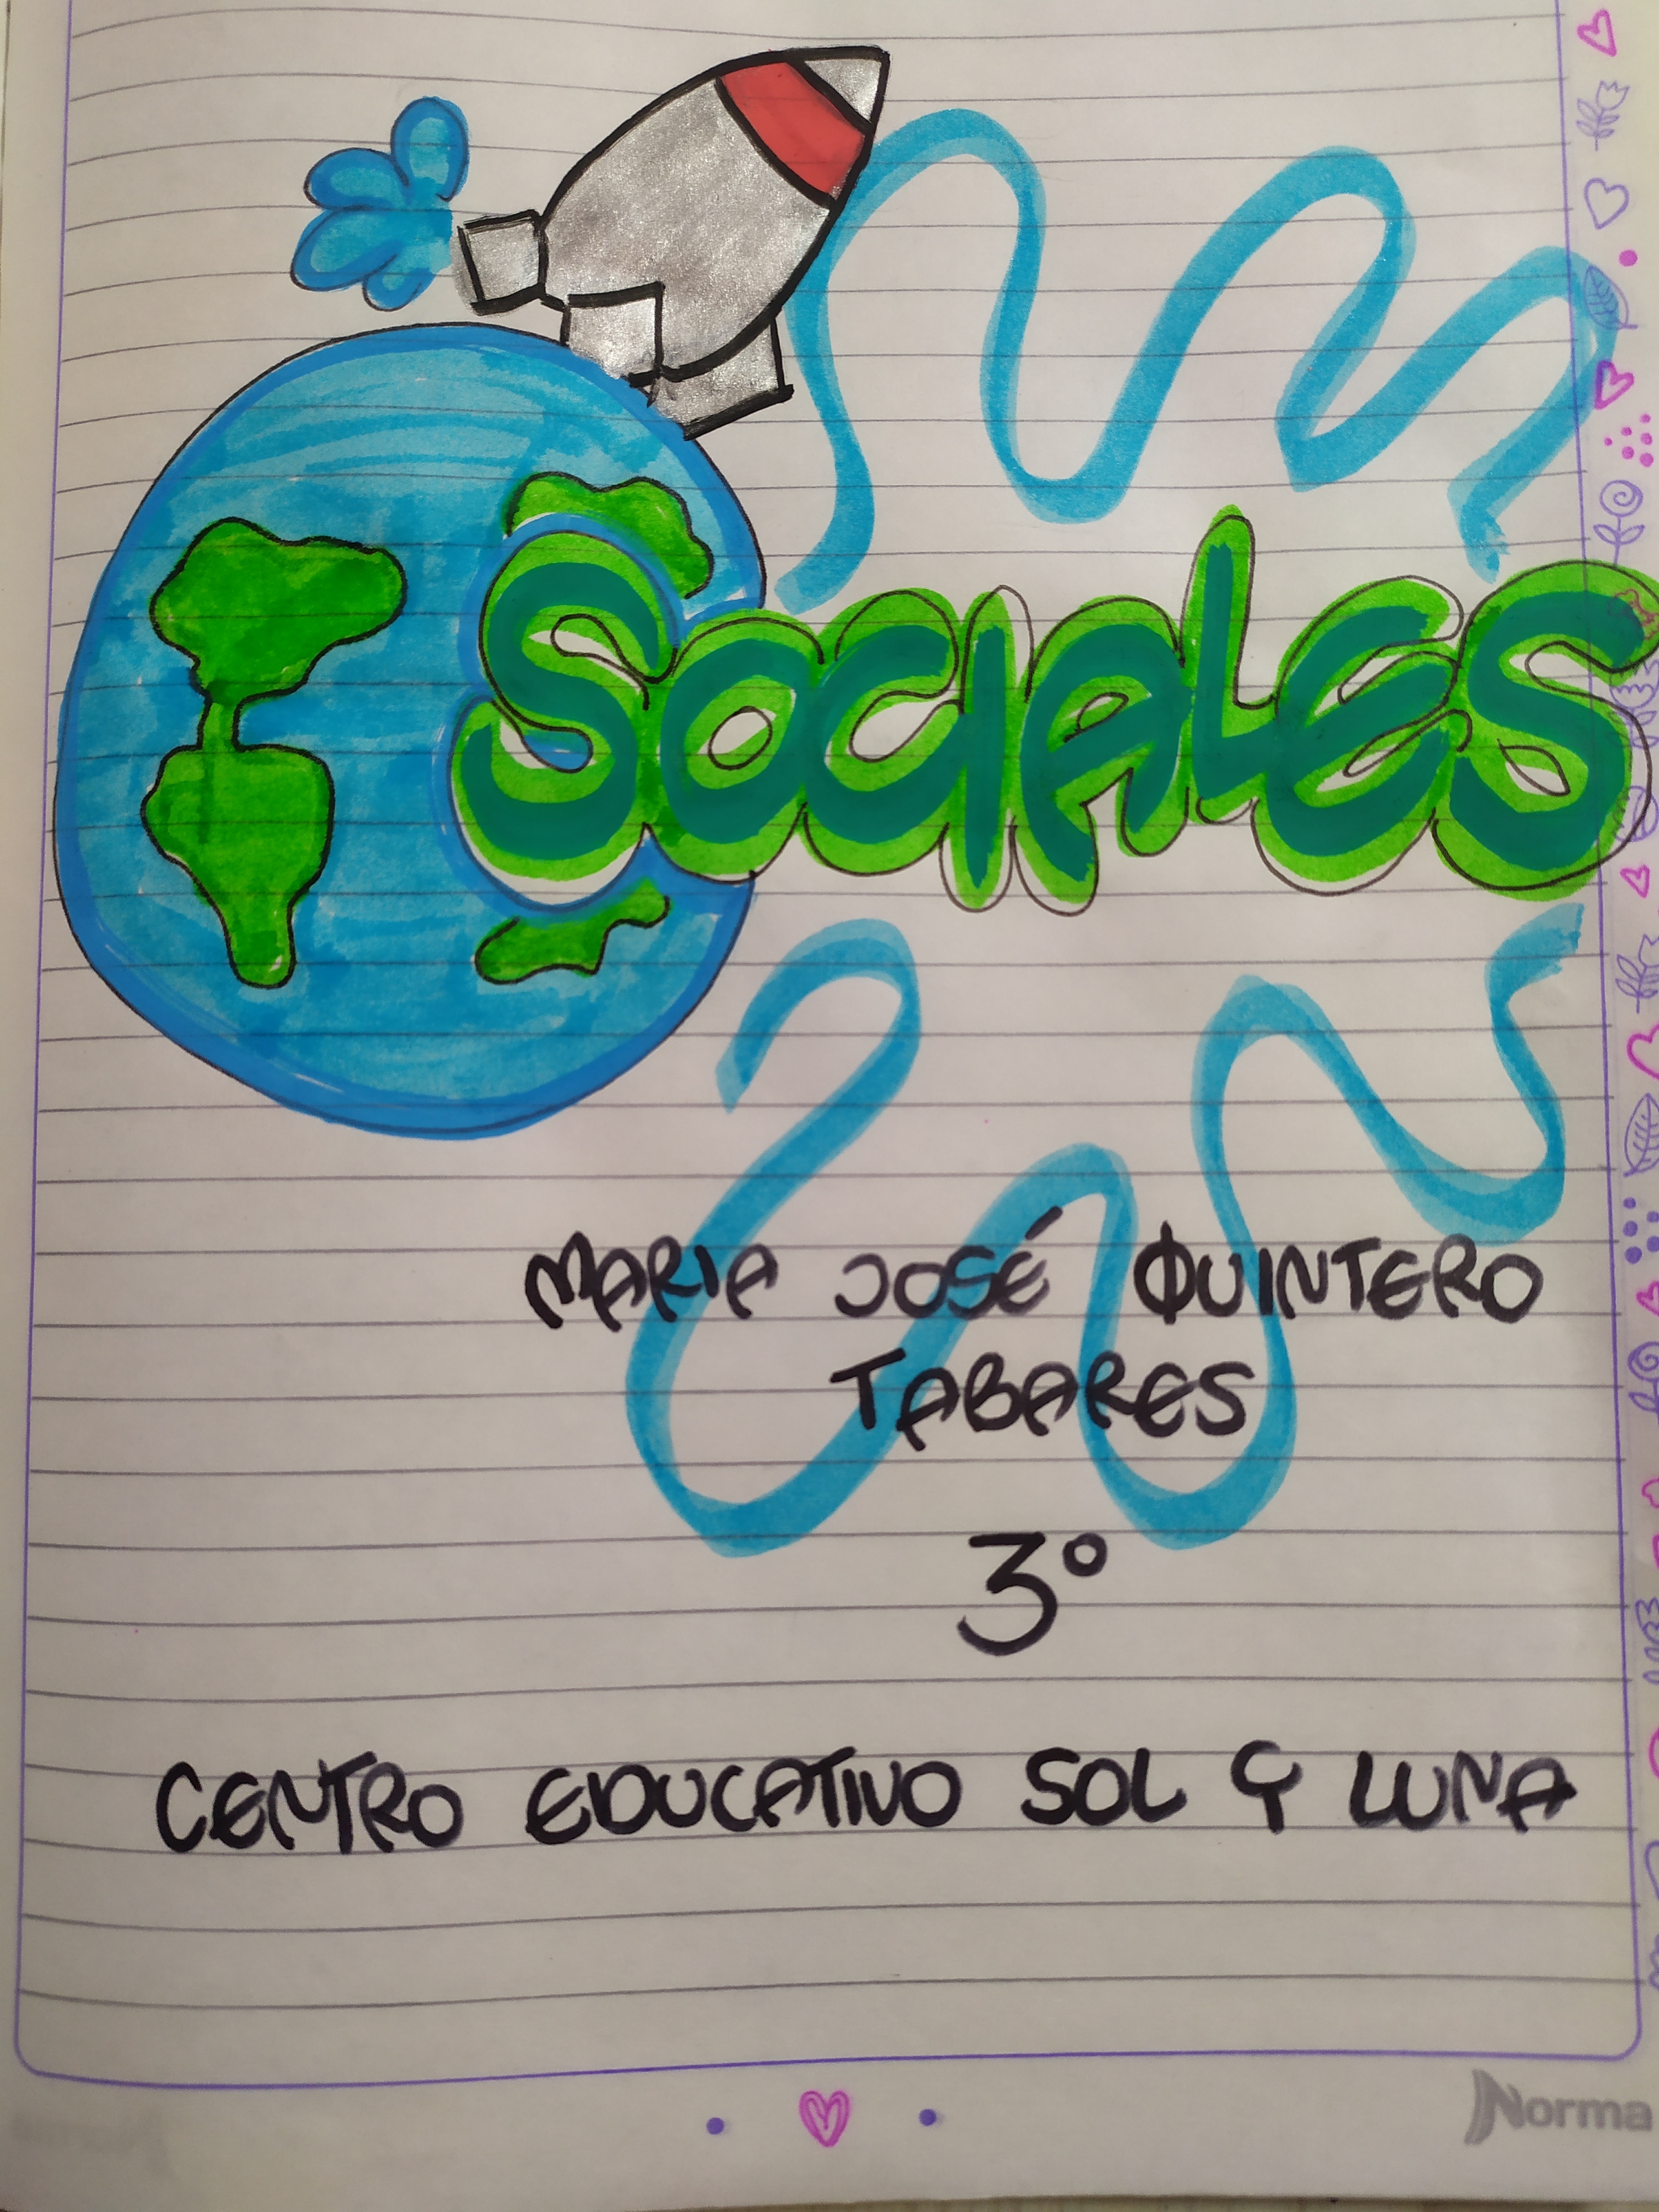 SOCIALES
MARIA JOSÉ QUINTERO
TABARES
3°
CENTRO EDUCATIVO SOL Y LUNA
Norma